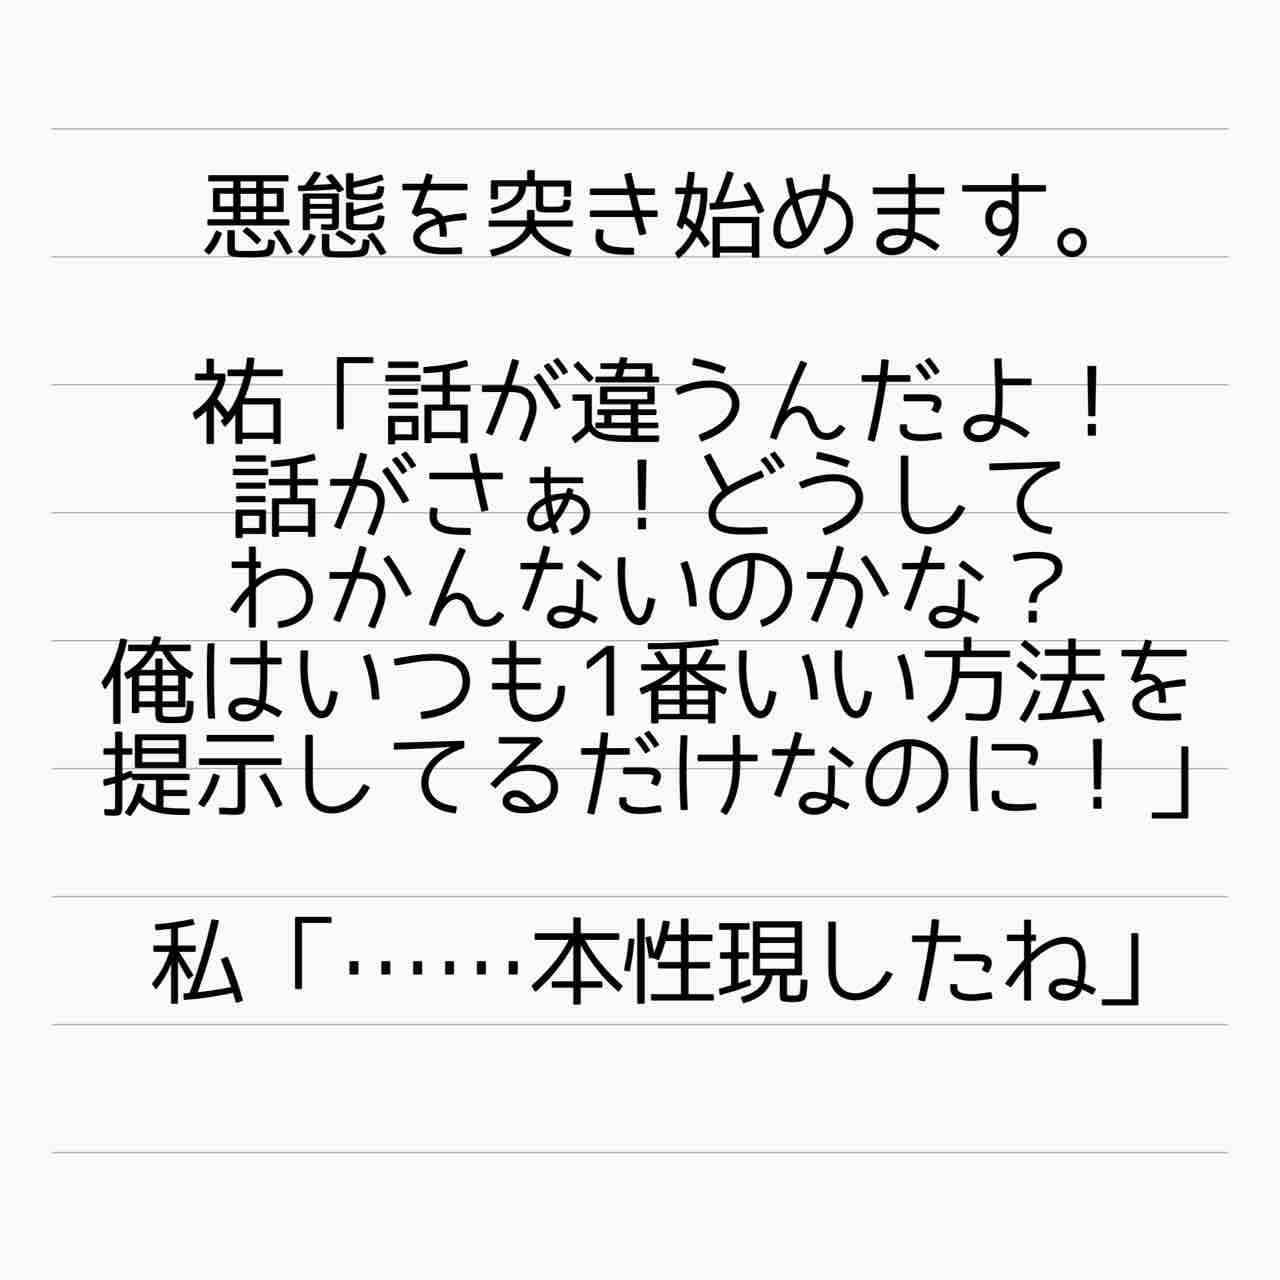 悪態を突き始めます。
祐「話が違うんだよ！
話がさぁ！どうして
わかんないのかな？
俺はいつも1番いい方法を
提示してるだけなのに！」
私「……本性現したね」